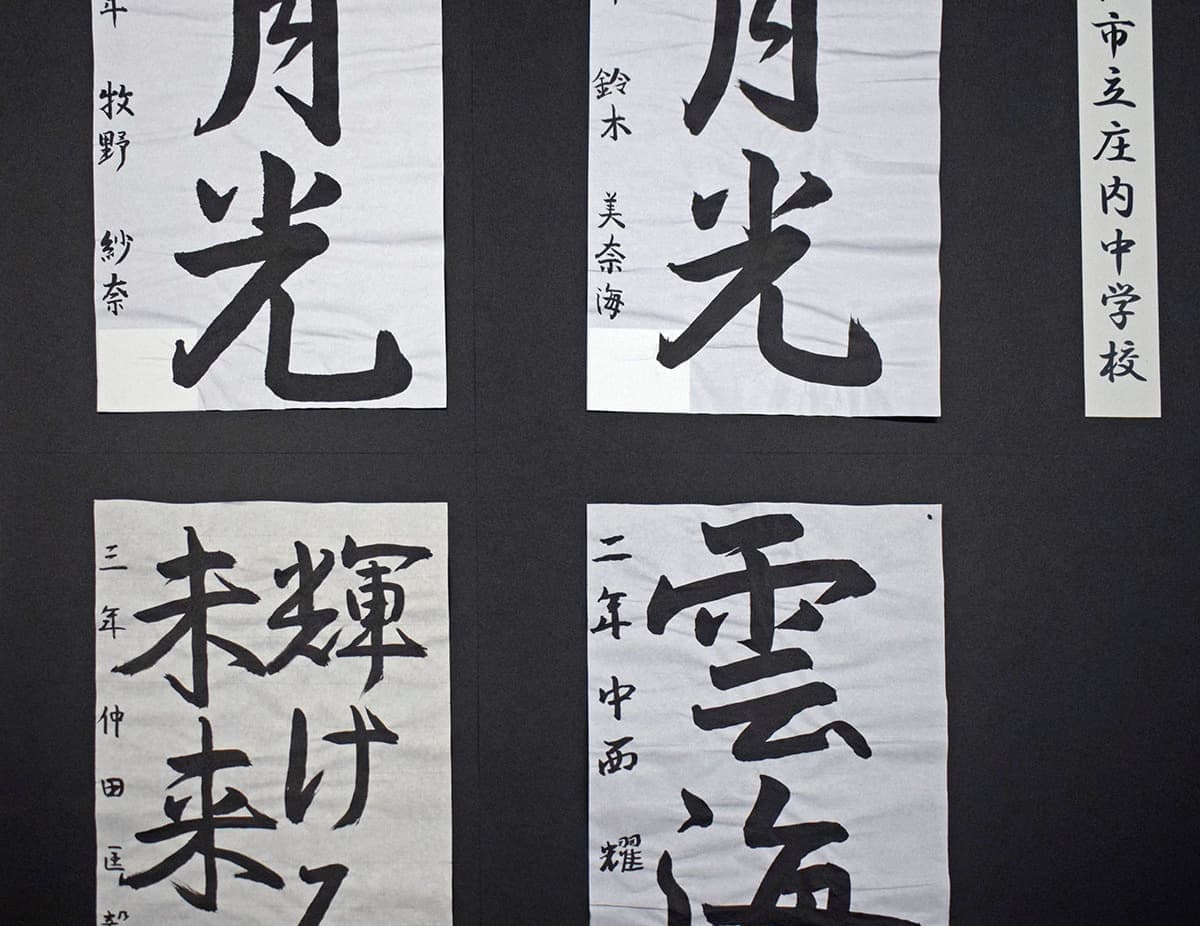 市立庄内中学校
月光
鈴木 美奈海
月光
年 牧野 紗奈
雲海
二年 中西 耀
輝ける
未来
三年 仲田 匡